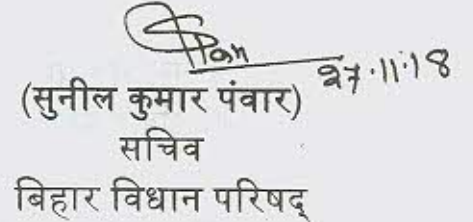 27.11.18
(सुनील कुमार पंवार)
सचिव
बिहार विधान परिषद्